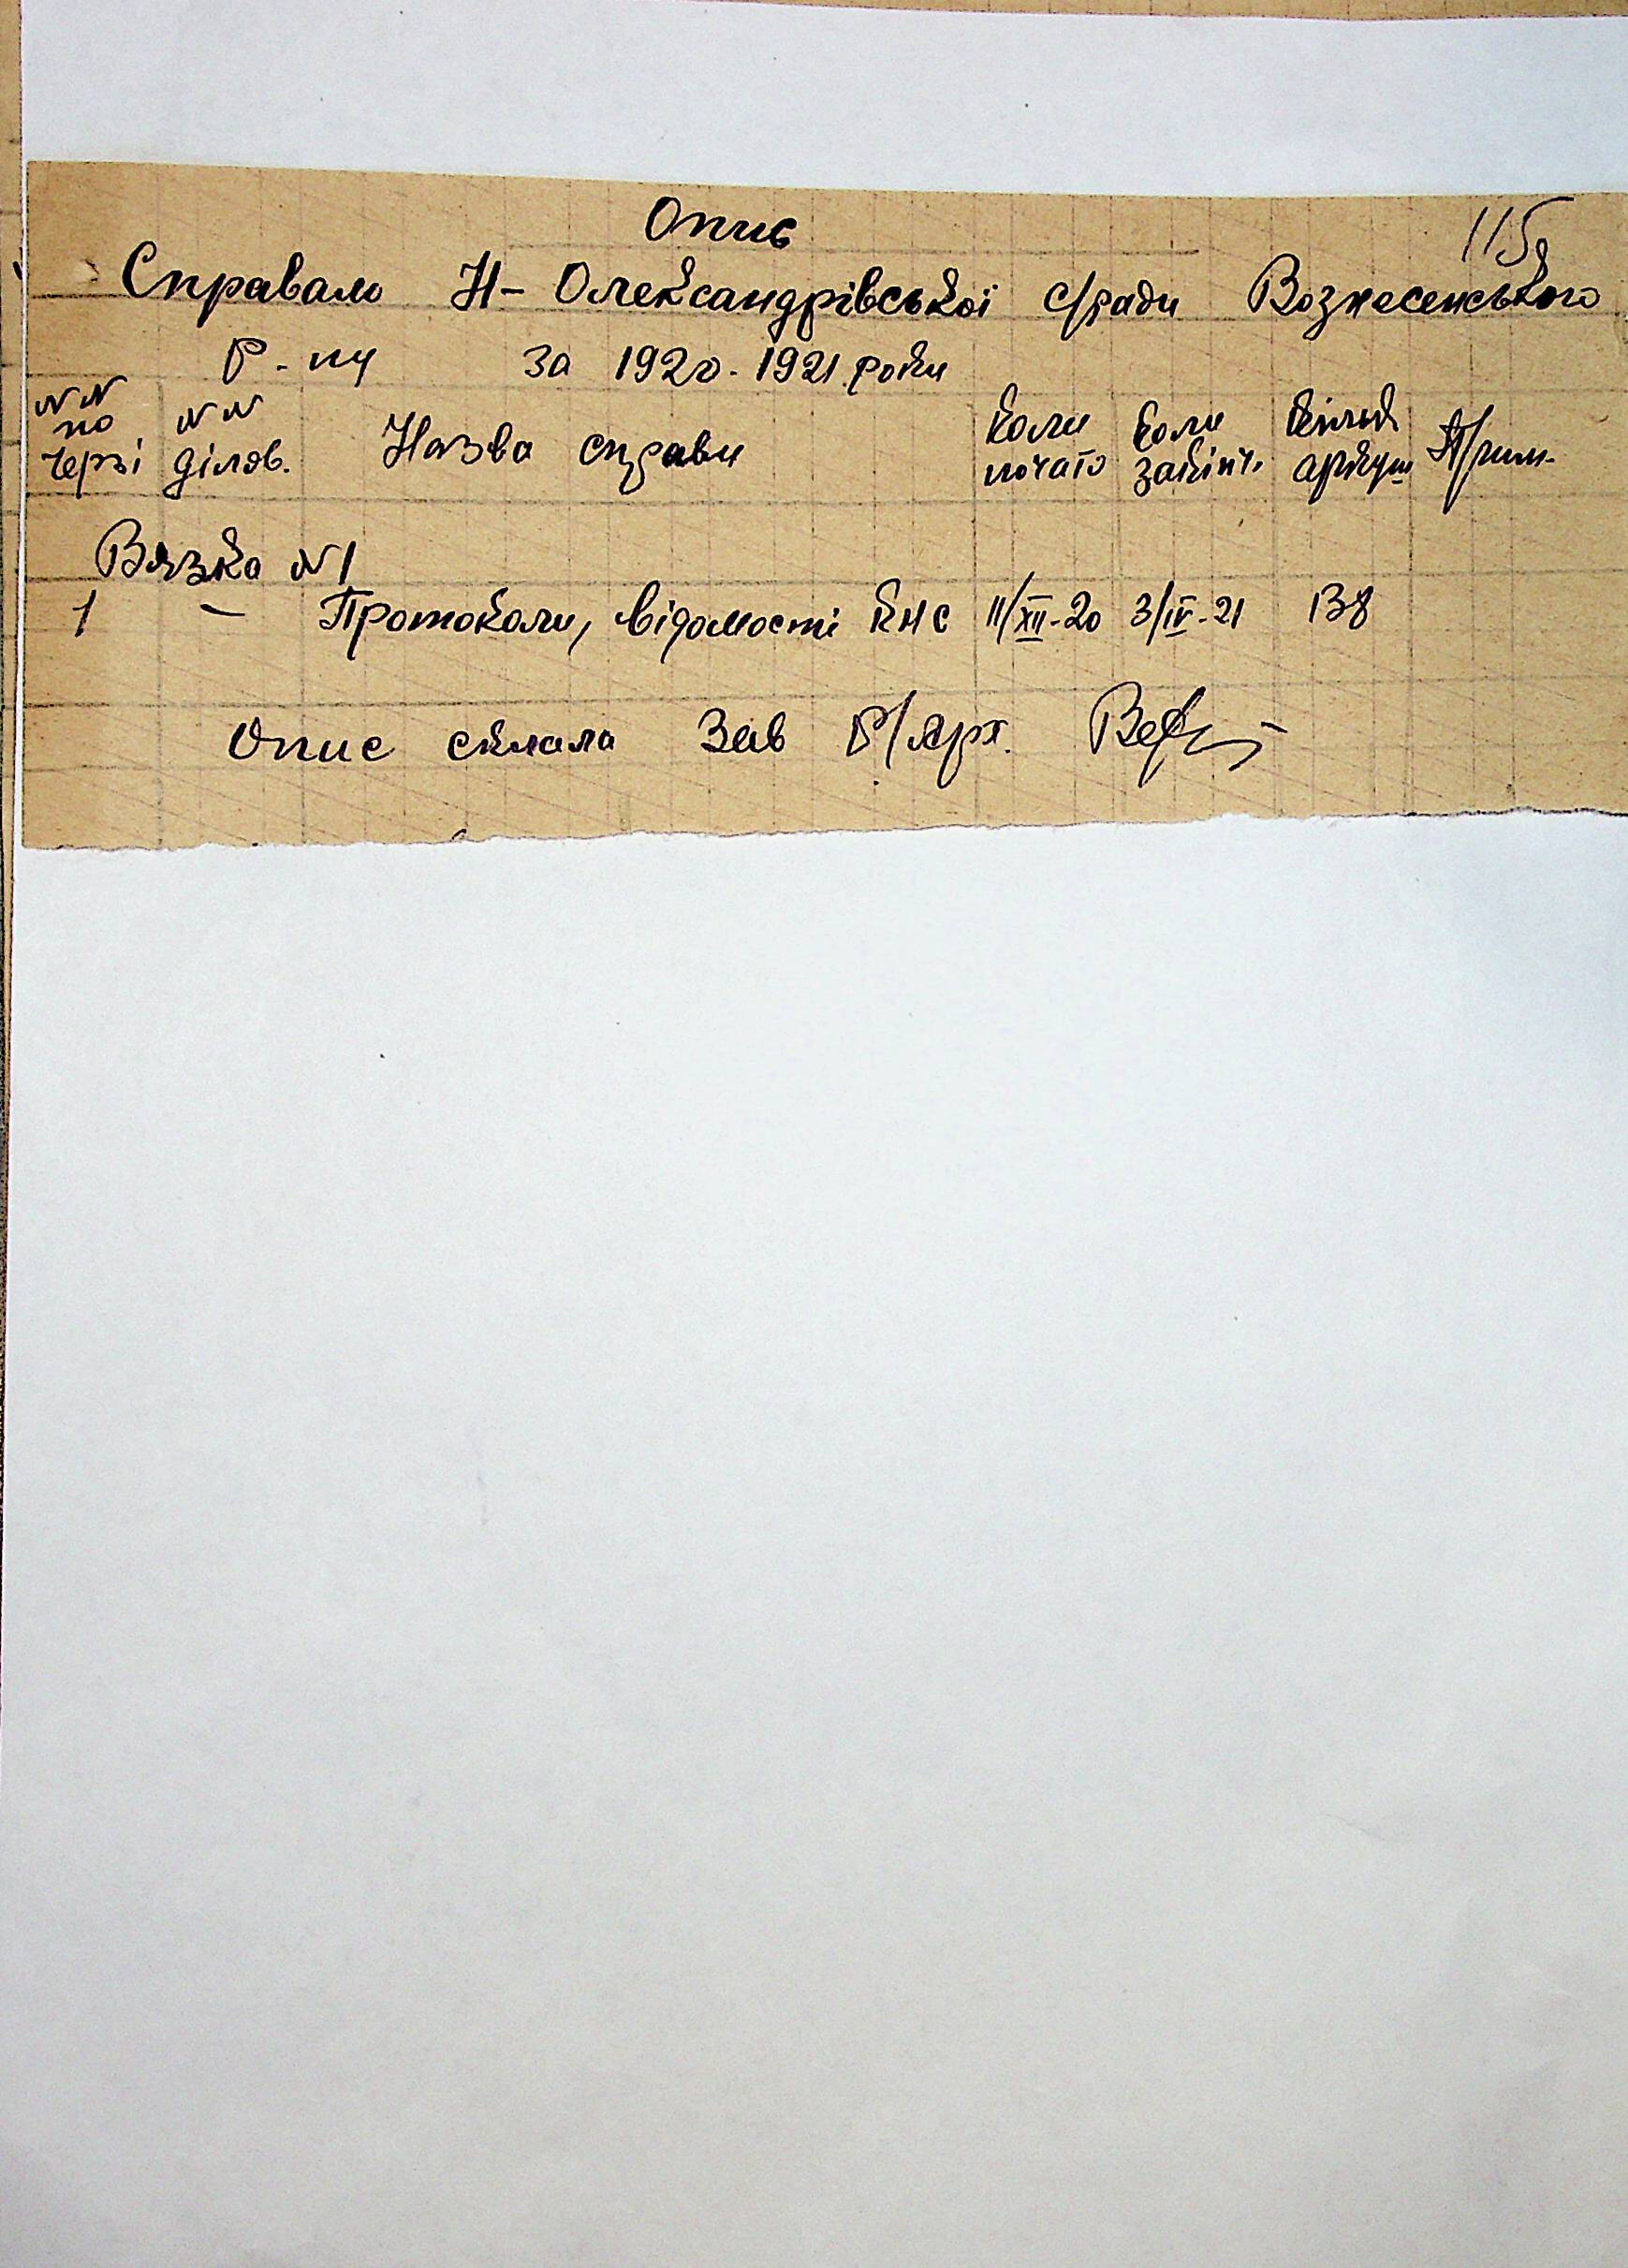 Опис
115
Справам Н-Олександрівської с/ради Вознесенського
Р-ну за 1920-1921 роки
NN по черзі NN ділов. Назва справи коли почато коли закінч. кільк аркуш Прим.
Вязка N1
1 – Протоколи, відомості КНС 11/XII-20 3/IV-21 138
Опис склала Зав Р/Арх.